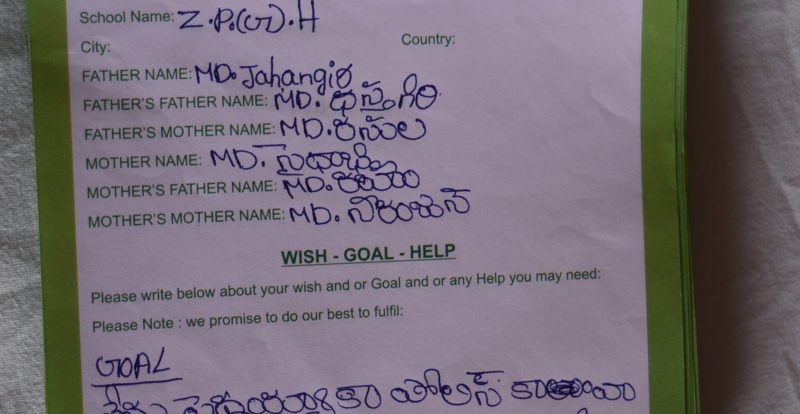 School Name: Z.P.(G).H
City: Country:
FATHER NAME: MD. Jahangir
FATHER'S FATHER NAME: MD.
FATHER'S MOTHER NAME: MD. రసూల
MOTHER NAME: MD.
MOTHER'S FATHER NAME: MD.
MOTHER'S MOTHER NAME: MD.
WISH - GOAL - HELP
Please write below about your wish and or Goal and or any Help you may need:
Please Note : we promise to do our best to fulfil:
GOAL